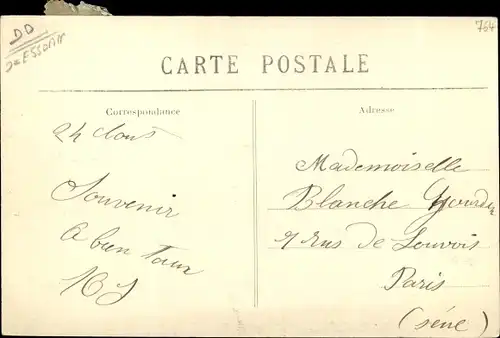 DD
ESSONN
764
CARTE POSTALE
Correspondance
24 Aout
Souvenir
A bien Taux
Adresse
Mademoiselle
Blanche
rue de Louvois
Paris
(séne)